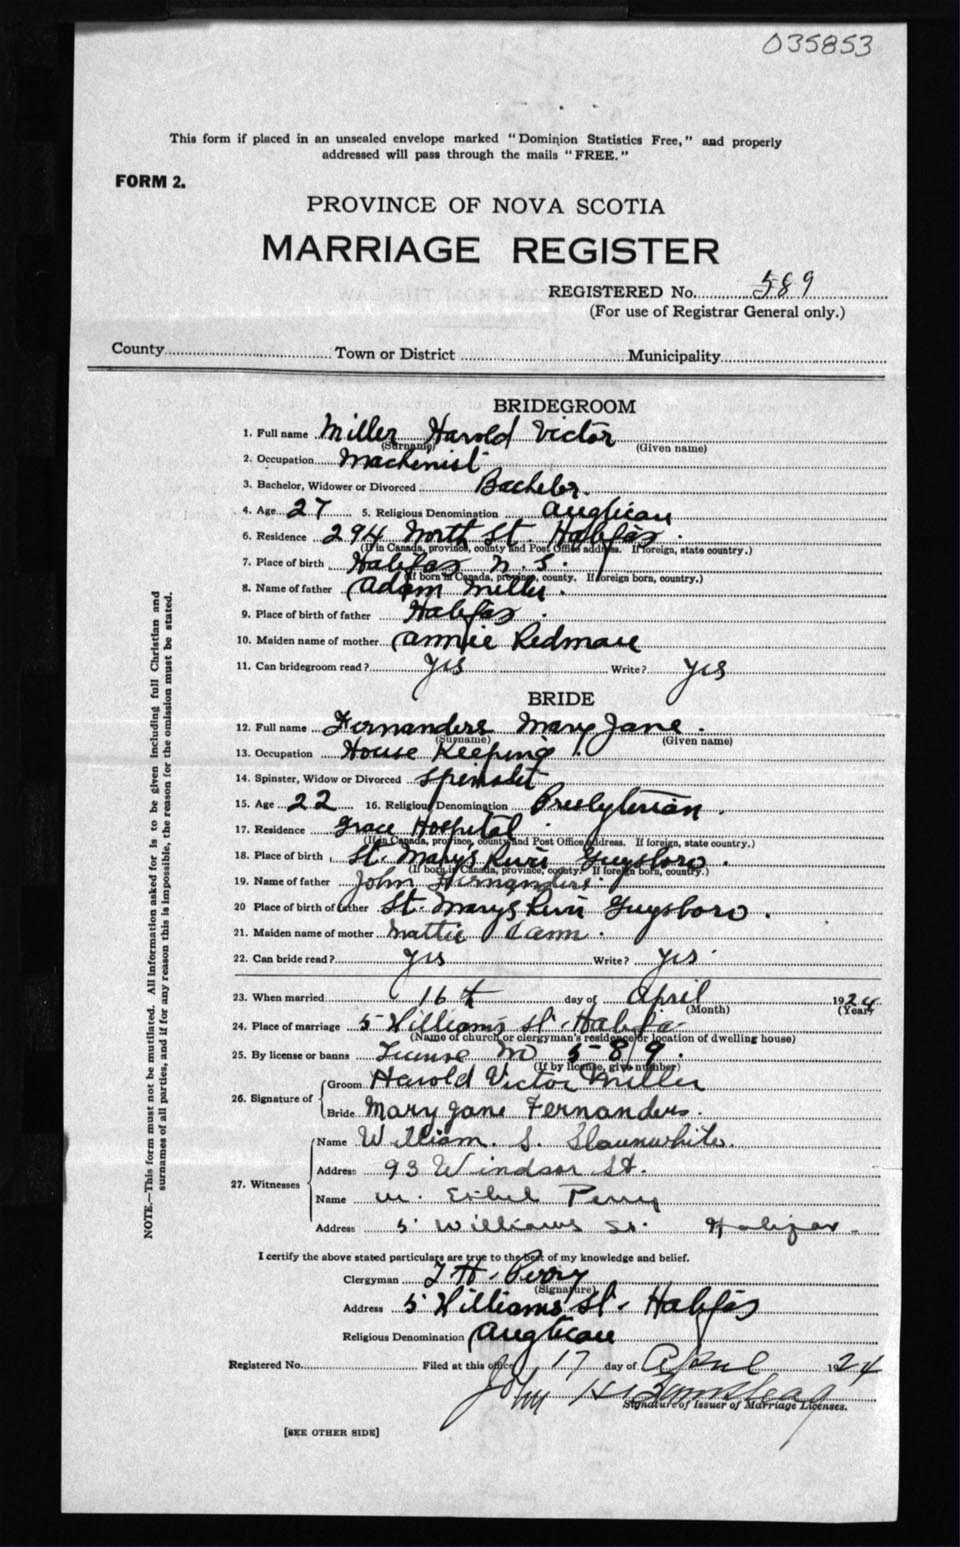 035853
This form if placed in an unsealed envelope marked "Dominion Statistics Free," and properly
addressed will pass through the mails "FREE."
FORM 2.
PROVINCE OF NOVA SCOTIA
MARRIAGE REGISTER
REGISTERED No. 589
(For use of Registrar General only.)
County Town or District Municipality
BRIDEGROOM
1. Full name Miller Harold Victor
(Surname) (Given name)
2. Occupation Machenist
3. Bachelor, Widower or Divorced Bachelor.
4. Age 27 5. Religious Denomination Anglican
6. Residence 294 North St. Halifax.
(If in Canada, province, county and Post Office address. If foreign, state country.)
7. Place of birth Halifax N. S.
(If born in Canada, province, county. If foreign born, country.)
8. Name of father Adam Miller.
9. Place of birth of father Halifax.
10. Maiden name of mother Annie Redman
11. Can bridegroom read? Yes Write? Yes
BRIDE
12. Full name Fernanders Mary Jane.
(Surname) (Given name)
13. Occupation House Keeping
14. Spinster, Widow or Divorced
15. Age 22 16. Religious Denomination Presbyterian.
17. Residence Grace Hospital
(If in Canada, province, county and Post Office address. If foreign, state country.)
18. Place of birth St. Marys River Guysboro.
(If born in Canada, province, county. If foreign born, country.)
19. Name of father John Fernanders.
20 Place of birth of father St. Marys River Guysboro.
21. Maiden name of mother Mattie
22. Can bride read? Yes Write? Yes
23. When married 16th day of April 1924
(Month) (Year)
24. Place of marriage 5 Williams St. Halifax
(Name of church or clergyman's residence or location of dwelling house)
25. By license or banns License No 589.
(If by license, give number)
26. Signature of Groom Harold Victor Miller
Bride Mary Jane Fernanders.
27. Witnesses Name William. S. Slaunwhite.
Address 93 Windsor St.
Name M. Ethel Perry
Address 5 Williams St. Halifax.
I certify the above stated particulars are true to the best of my knowledge and belief.
Clergyman T. H. Perry
(Signature)
Address 5 Williams St. Halifax
Religious Denomination Anglican
Registered No. Filed at this office, 17 day of April 1924
John H.
Signature of Issuer of Marriage Licenses.
[SEE OTHER SIDE]
NOTE.—This form must not be mutilated. All information asked for is to be given including full Christian and
surnames of all parties, and if for any reason this is impossible, the reason for the omission must be stated.